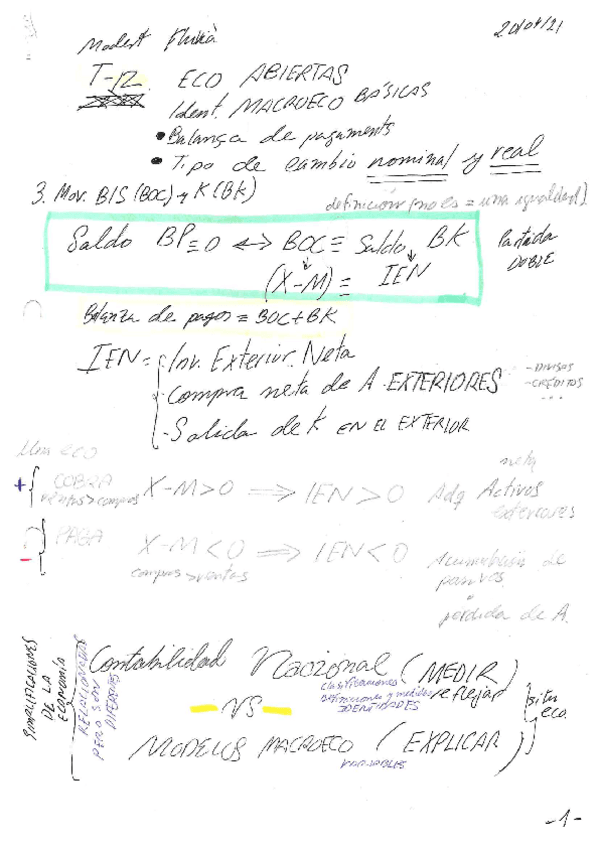 20/04/21
Modest Fluvià
T-12. ECO ABIERTAS
Ident. MACROECO BÁSICAS
• Balança de pagaments
• Tipo de cambio nominal y real
3. Mov. B/S (BOC) y K (BK)
definición (no es = una igualdad).
Saldo BP≡0 ⟷ BOC ≡ Saldo BK
Partida DOBLE
(X-M) ≡ IEN
Balanza de pagos = BOC+BK
IEN = · Inv. Exterior. Neta
· Compra neta de A EXTERIORES
- DIVISAS
- CRÉDITOS
...
- Salida de K EN EL EXTERIOR
Una eco
+ COBRA
ventas > compras
X-M>0 ⟹ IEN>0 Adq neta Activos exteriores
- PAGA
X-M<0 ⟹ IEN<0
compras > ventas
Acumulación de pasivos
o
pérdida de A.
SIMPLIFICACIONES DE LA ECONOMÍA
RELACIONADAS PERO SON DIFERENTES
Contabilidad Nacional (MEDIR)
reflejar
clasificaciones
definiciones y medidas
IDENTIDADES
- VS -
situ eco.
MODELOS MACROECO (EXPLICAR)
VARIABLES
-1-